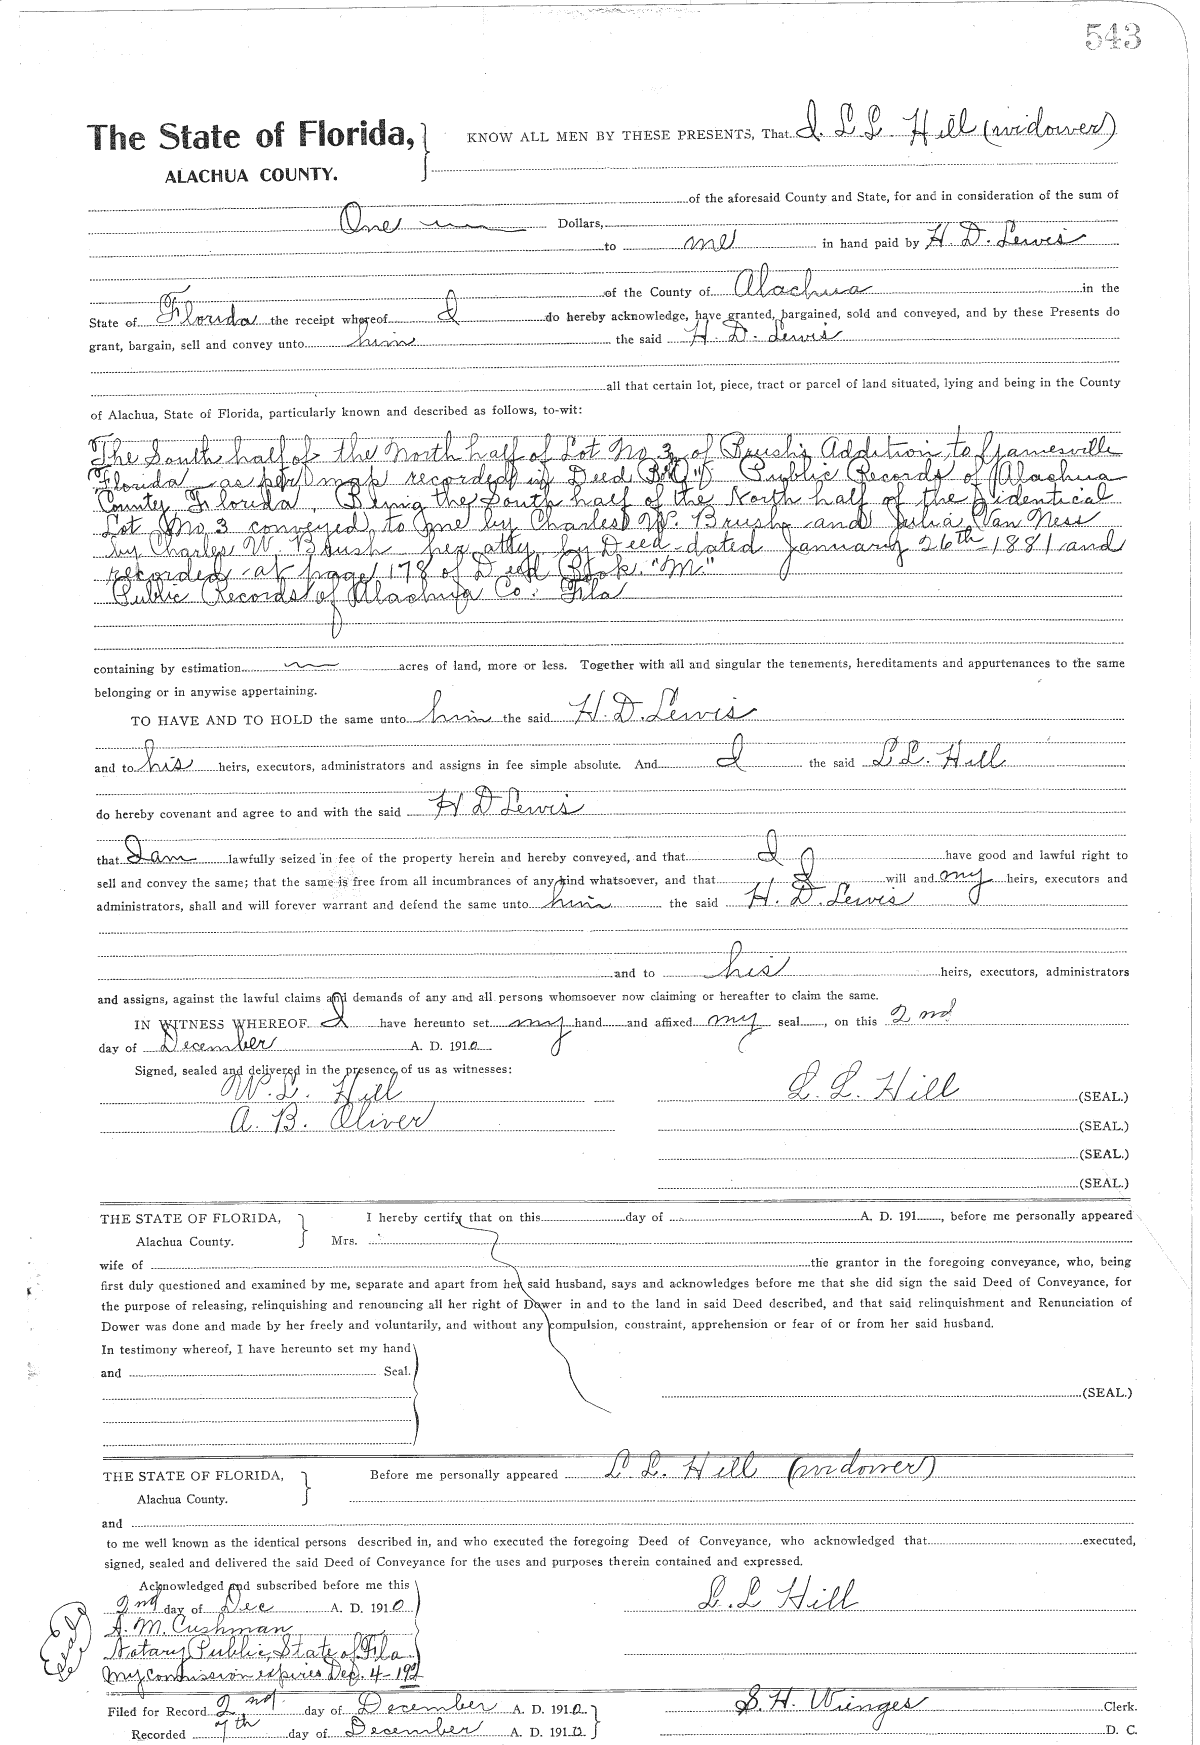 543
The State of Florida, KNOW ALL MEN BY THESE PRESENTS, That I. L L Hill (widower)
ALACHUA COUNTY.
of the aforesaid County and State, for and in consideration of the sum of
One Dollars,
to me in hand paid by H. D. Lewis
of the County of Alachua in the
State of Florida the receipt whereof I do hereby acknowledge, have granted, bargained, sold and conveyed, and by these Presents do
grant, bargain, sell and convey unto him the said H. D. Lewis
all that certain lot, piece, tract or parcel of land situated, lying and being in the County
of Alachua, State of Florida, particularly known and described as follows, to-wit:
The South half of the North half of Lot No 3 of Brush's Addition to Gainesville
Florida as per map recorded in Deed Public Records of Alachua
County Florida. Being the South half of the North half of the identical
Lot No 3 conveyed to me by Charles W. Brush and Julia Van Ness
by Charles W. Brush her atty by Deed dated January 26th 1881 and
recorded at page 178 of Deed Book "M."
Public Records of Alachua Co. Fla
containing by estimation acres of land, more or less. Together with all and singular the tenements, hereditaments and appurtenances to the same
belonging or in anywise appertaining.
TO HAVE AND TO HOLD the same unto him the said H. D. Lewis
and to his heirs, executors, administrators and assigns in fee simple absolute. And I the said L L. Hill
do hereby covenant and agree to and with the said H D Lewis
that I am lawfully seized in fee of the property herein and hereby conveyed, and that I have good and lawful right to
sell and convey the same; that the same is free from all incumbrances of any kind whatsoever, and that I will and my heirs, executors and
administrators, shall and will forever warrant and defend the same unto him the said H. D. Lewis
and to his heirs, executors, administrators
and assigns, against the lawful claims and demands of any and all persons whomsoever now claiming or hereafter to claim the same.
IN WITNESS WHEREOF I have hereunto set my hand and affixed my seal, on this 2nd
day of December A. D. 1910
Signed, sealed and delivered in the presence of us as witnesses:
W. L. Hill L. L. Hill (SEAL.)
A. B. Oliver (SEAL.)
(SEAL.)
(SEAL.)
THE STATE OF FLORIDA, I hereby certify that on this day of A. D. 191, before me personally appeared
Alachua County. Mrs.
wife of the grantor in the foregoing conveyance, who, being
first duly questioned and examined by me, separate and apart from her said husband, says and acknowledges before me that she did sign the said Deed of Conveyance, for
the purpose of releasing, relinquishing and renouncing all her right of Dower in and to the land in said Deed described, and that said relinquishment and Renunciation of
Dower was done and made by her freely and voluntarily, and without any compulsion, constraint, apprehension or fear of or from her said husband.
In testimony whereof, I have hereunto set my hand
and Seal.
(SEAL.)
THE STATE OF FLORIDA, Before me personally appeared L L. Hill (widower)
Alachua County.
and
to me well known as the identical persons described in, and who executed the foregoing Deed of Conveyance, who acknowledged that executed,
signed, sealed and delivered the said Deed of Conveyance for the uses and purposes therein contained and expressed.
Acknowledged and subscribed before me this
2nd day of Dec A. D. 1910 L. L Hill
A. M. Cushman
Notary Public, State of Fla
My commission expires 4-
Filed for Record 2nd day of December A. D. 1910 S. H. Wienges Clerk.
Recorded 7th day of December A. D. 1910 D. C.